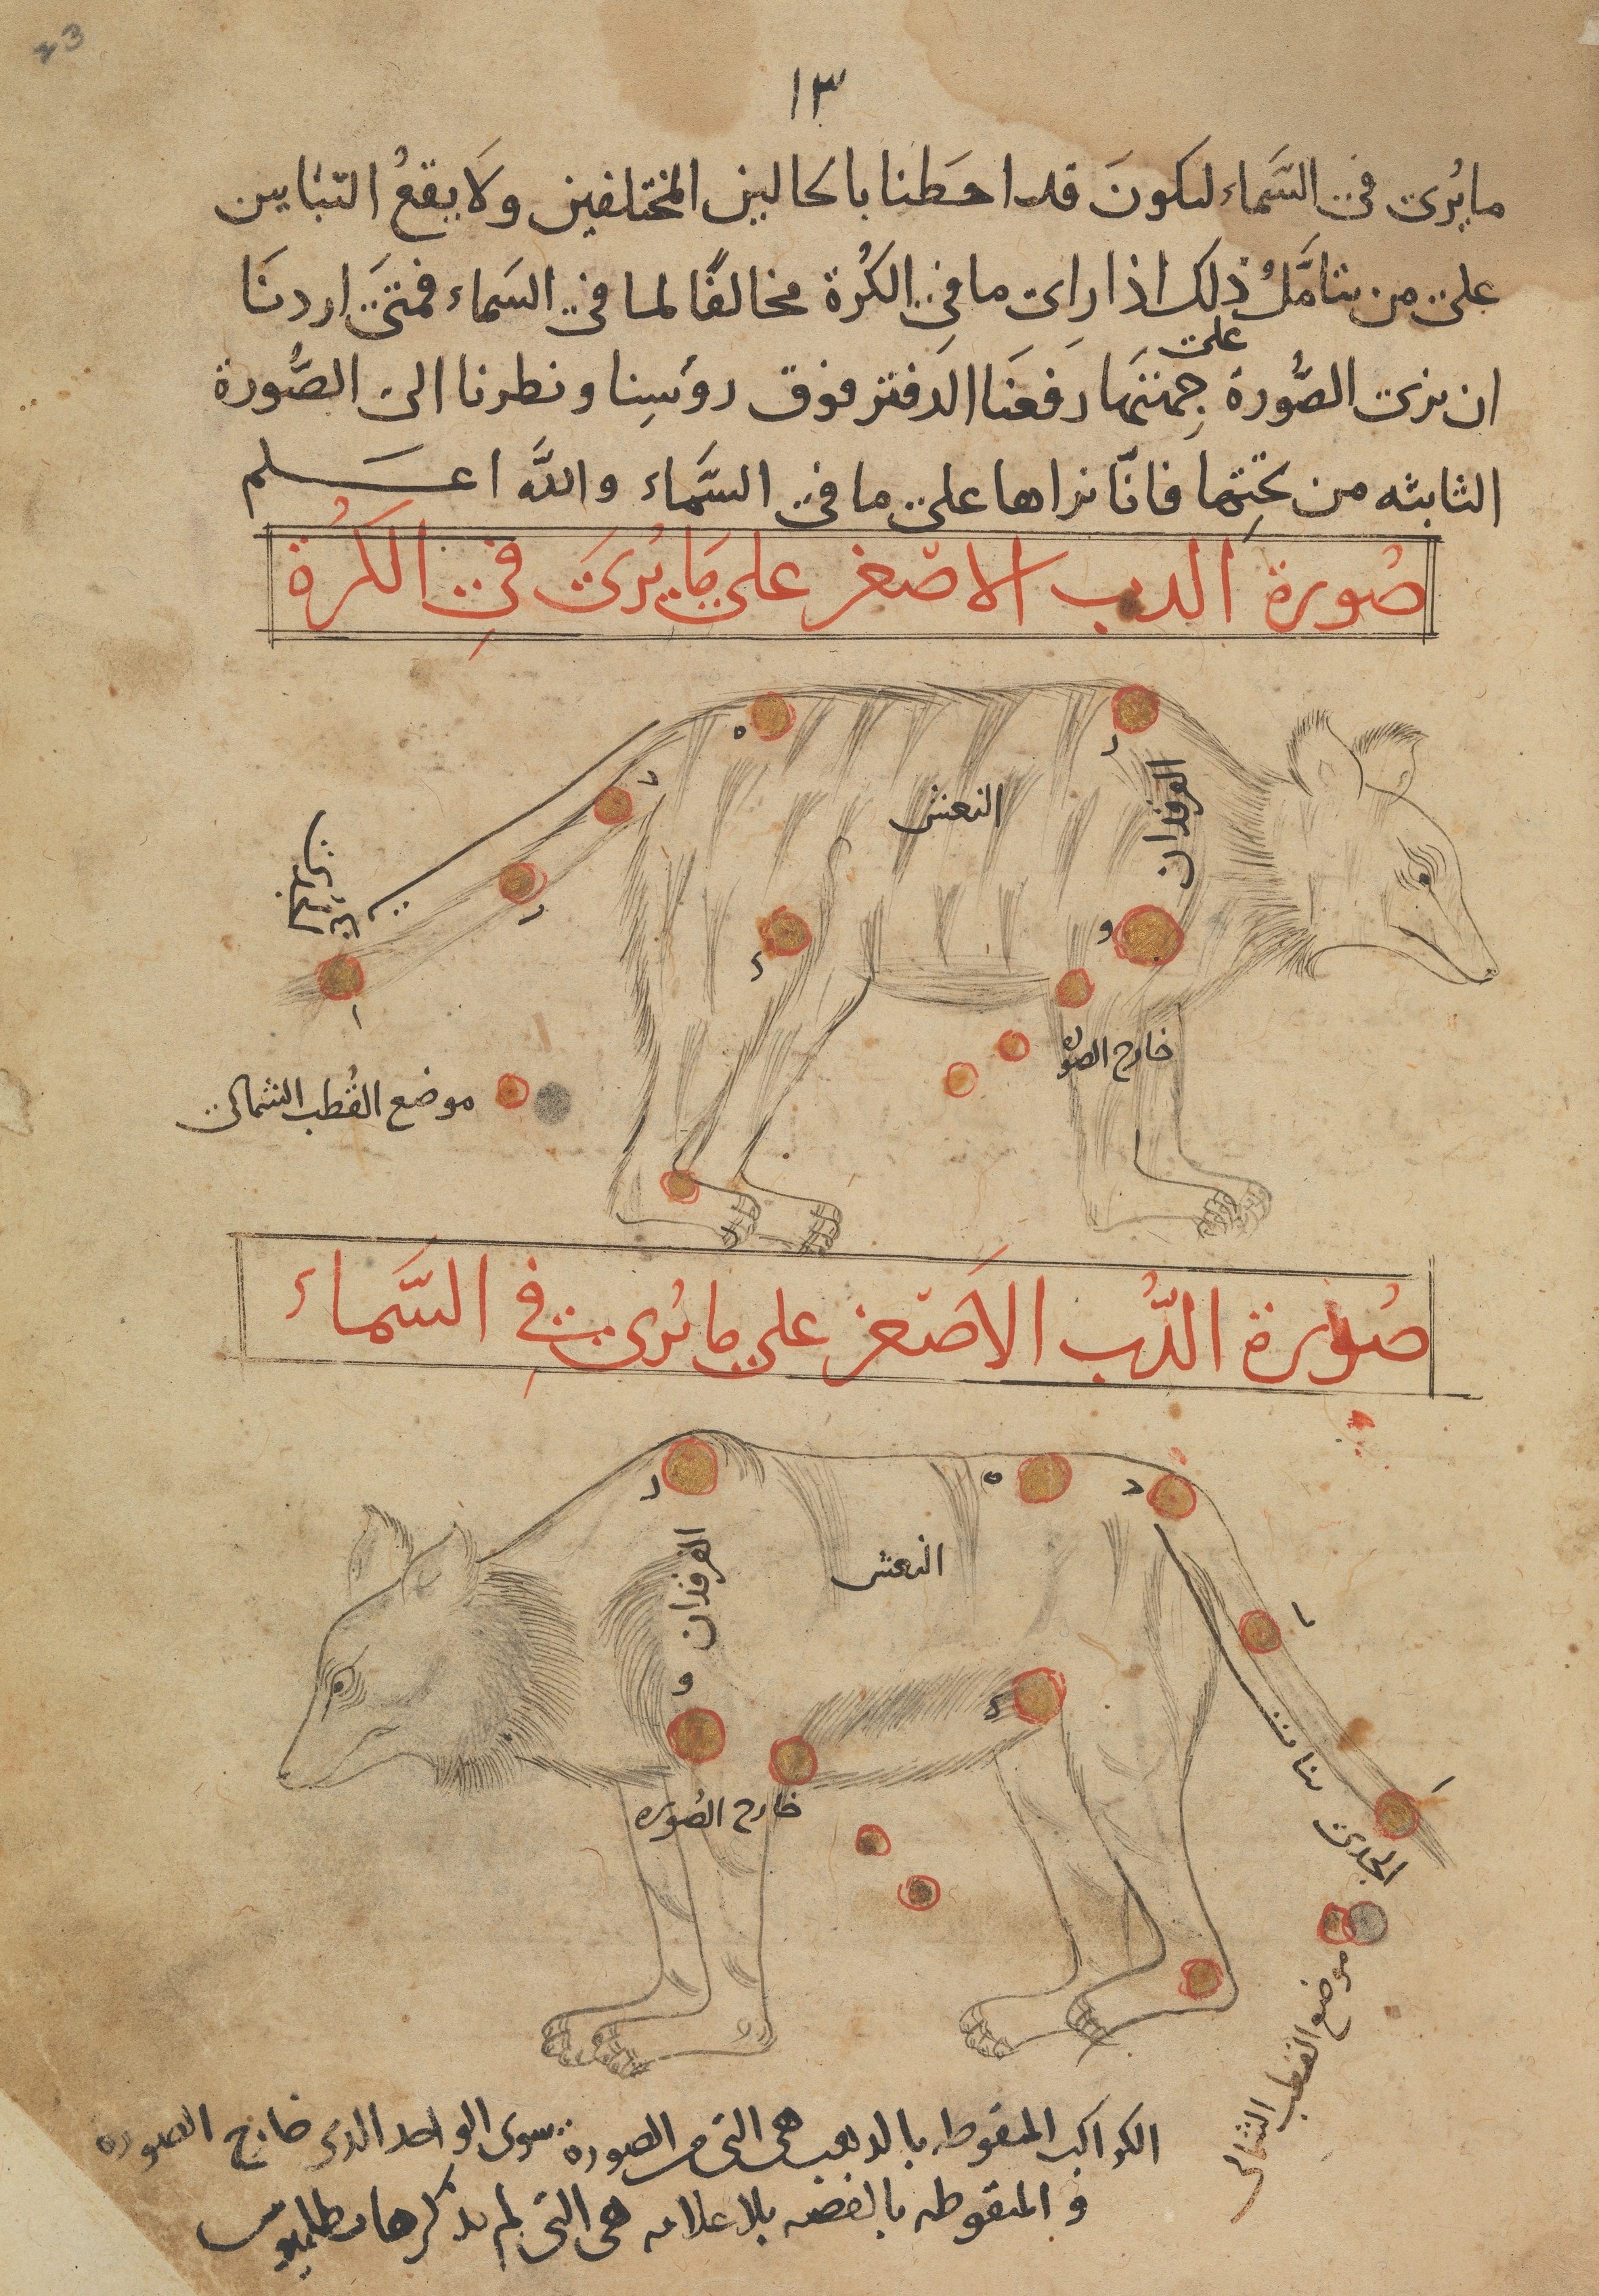 23
١٣
ما يُرى في السَّماء لنكونَ قد احَطنا بالحالين المختلفين ولَا يقعُ التبَاين
على من يتامَّلُ ذلك اذا راى ما في الكُرة مخالفًا لما في السَماء فمتَى اردنَا
على
ان نرى الصُّورة جِهتهَا رفعنَا الدفتر فوق رؤسِنا ونظرنا الى الصُّورة
الثانيه من تحتِها فانَّا نراها على ما في السَّماء واللَّه اعـلم
صُورة الدب الاصغر على مَا يُرىَ في الكُرة
ه
ز
د
النعش
الفرقدان
ب
الجدى
و
ح
ا
خارج الصوره
موضع القُطب الشمالى
صُورة الدُّب الاَصغر على ما يُرى في السَّماء
ز
ه
د
الفرقدان
النعش
ب
و
ح
بنات
ا
الجدى
خارج الصُوره
موضع القطب الشمالى
الكواكب المنقوطه بالذهب هى التى من الصوره سوى الواحد الذى خارج الصوره
و المنقوطه بالفضه بلا علامه هى التى لم يذكرها بطلميوس